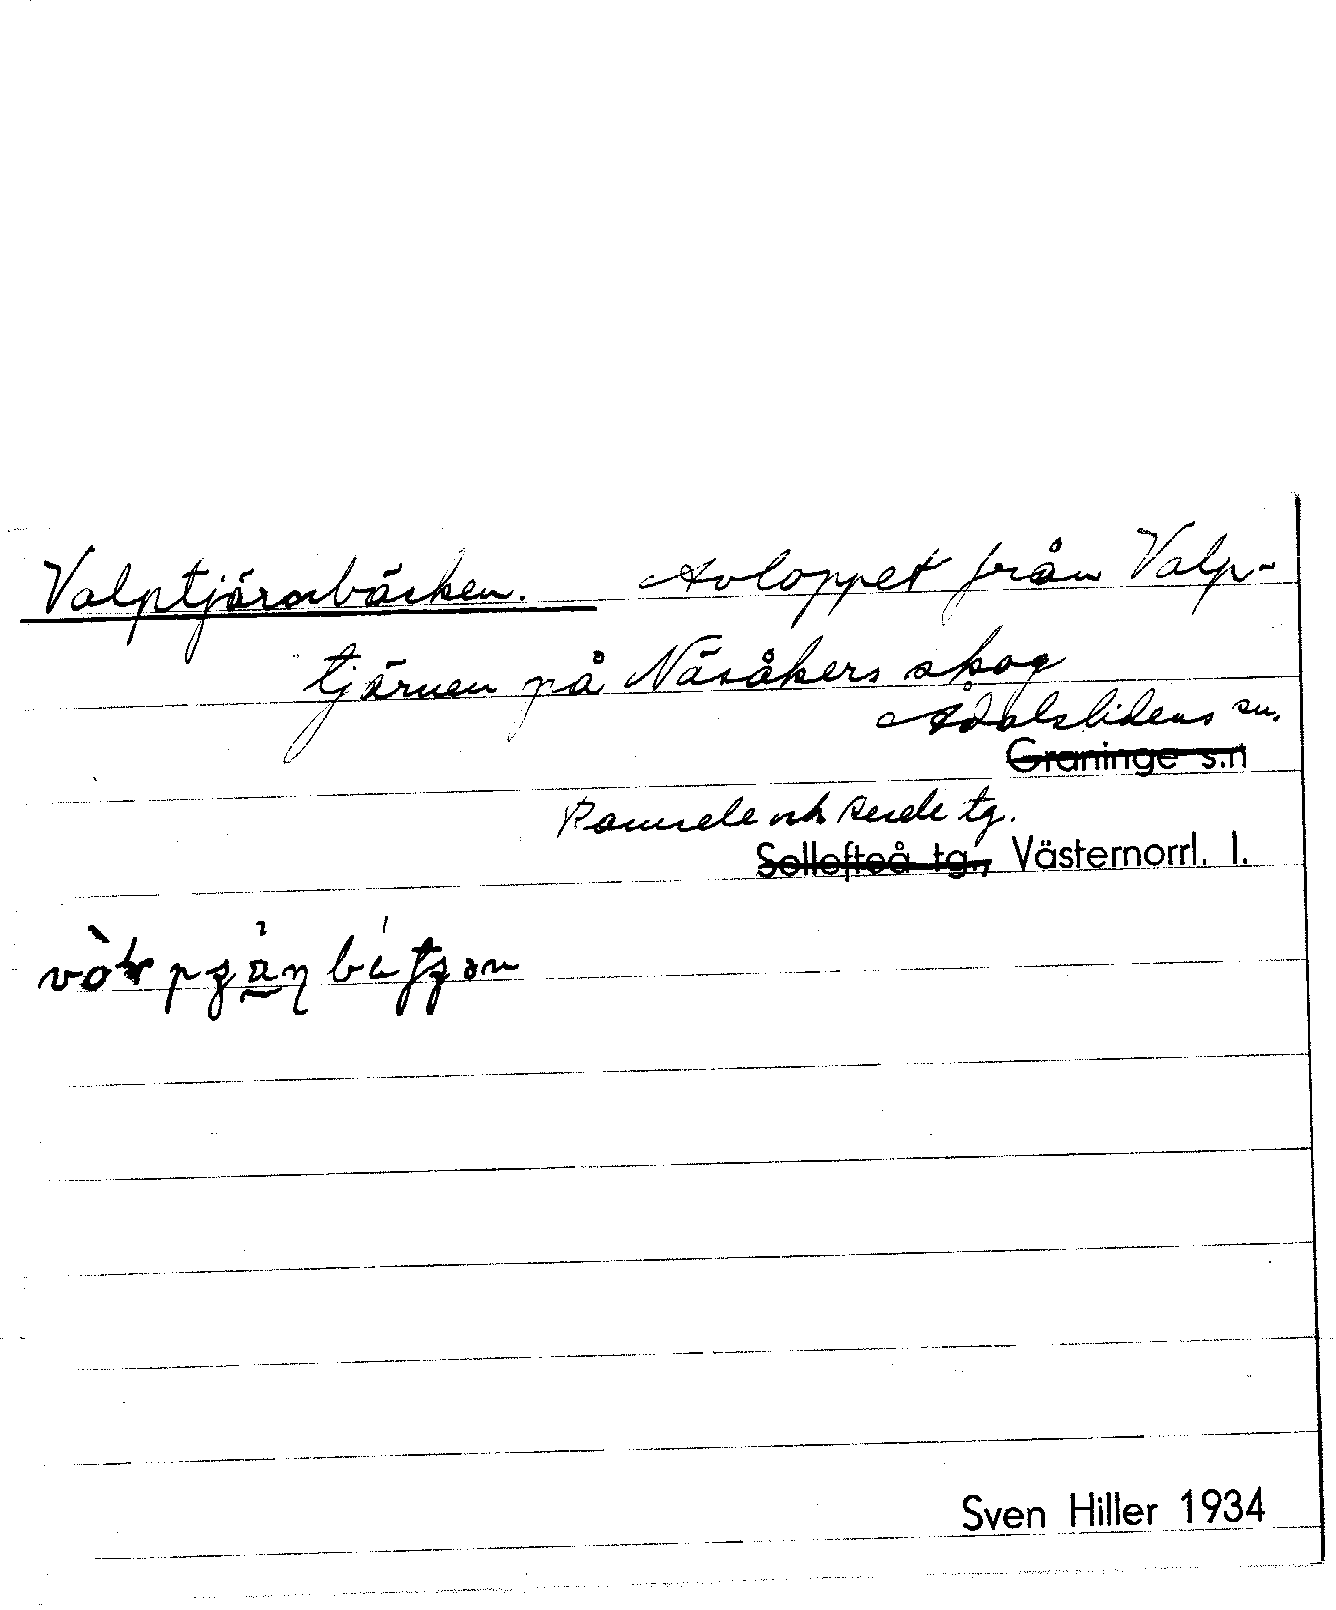 Valptjärnbäcken. Avloppet från Valp-
tjärnen på Näsåkers skog
Ådalslidens sn.
Graninge s:n
Ramsele och Resele tg.
Sollefteå tg., Västernorrl. l.
Sven Hiller 1934